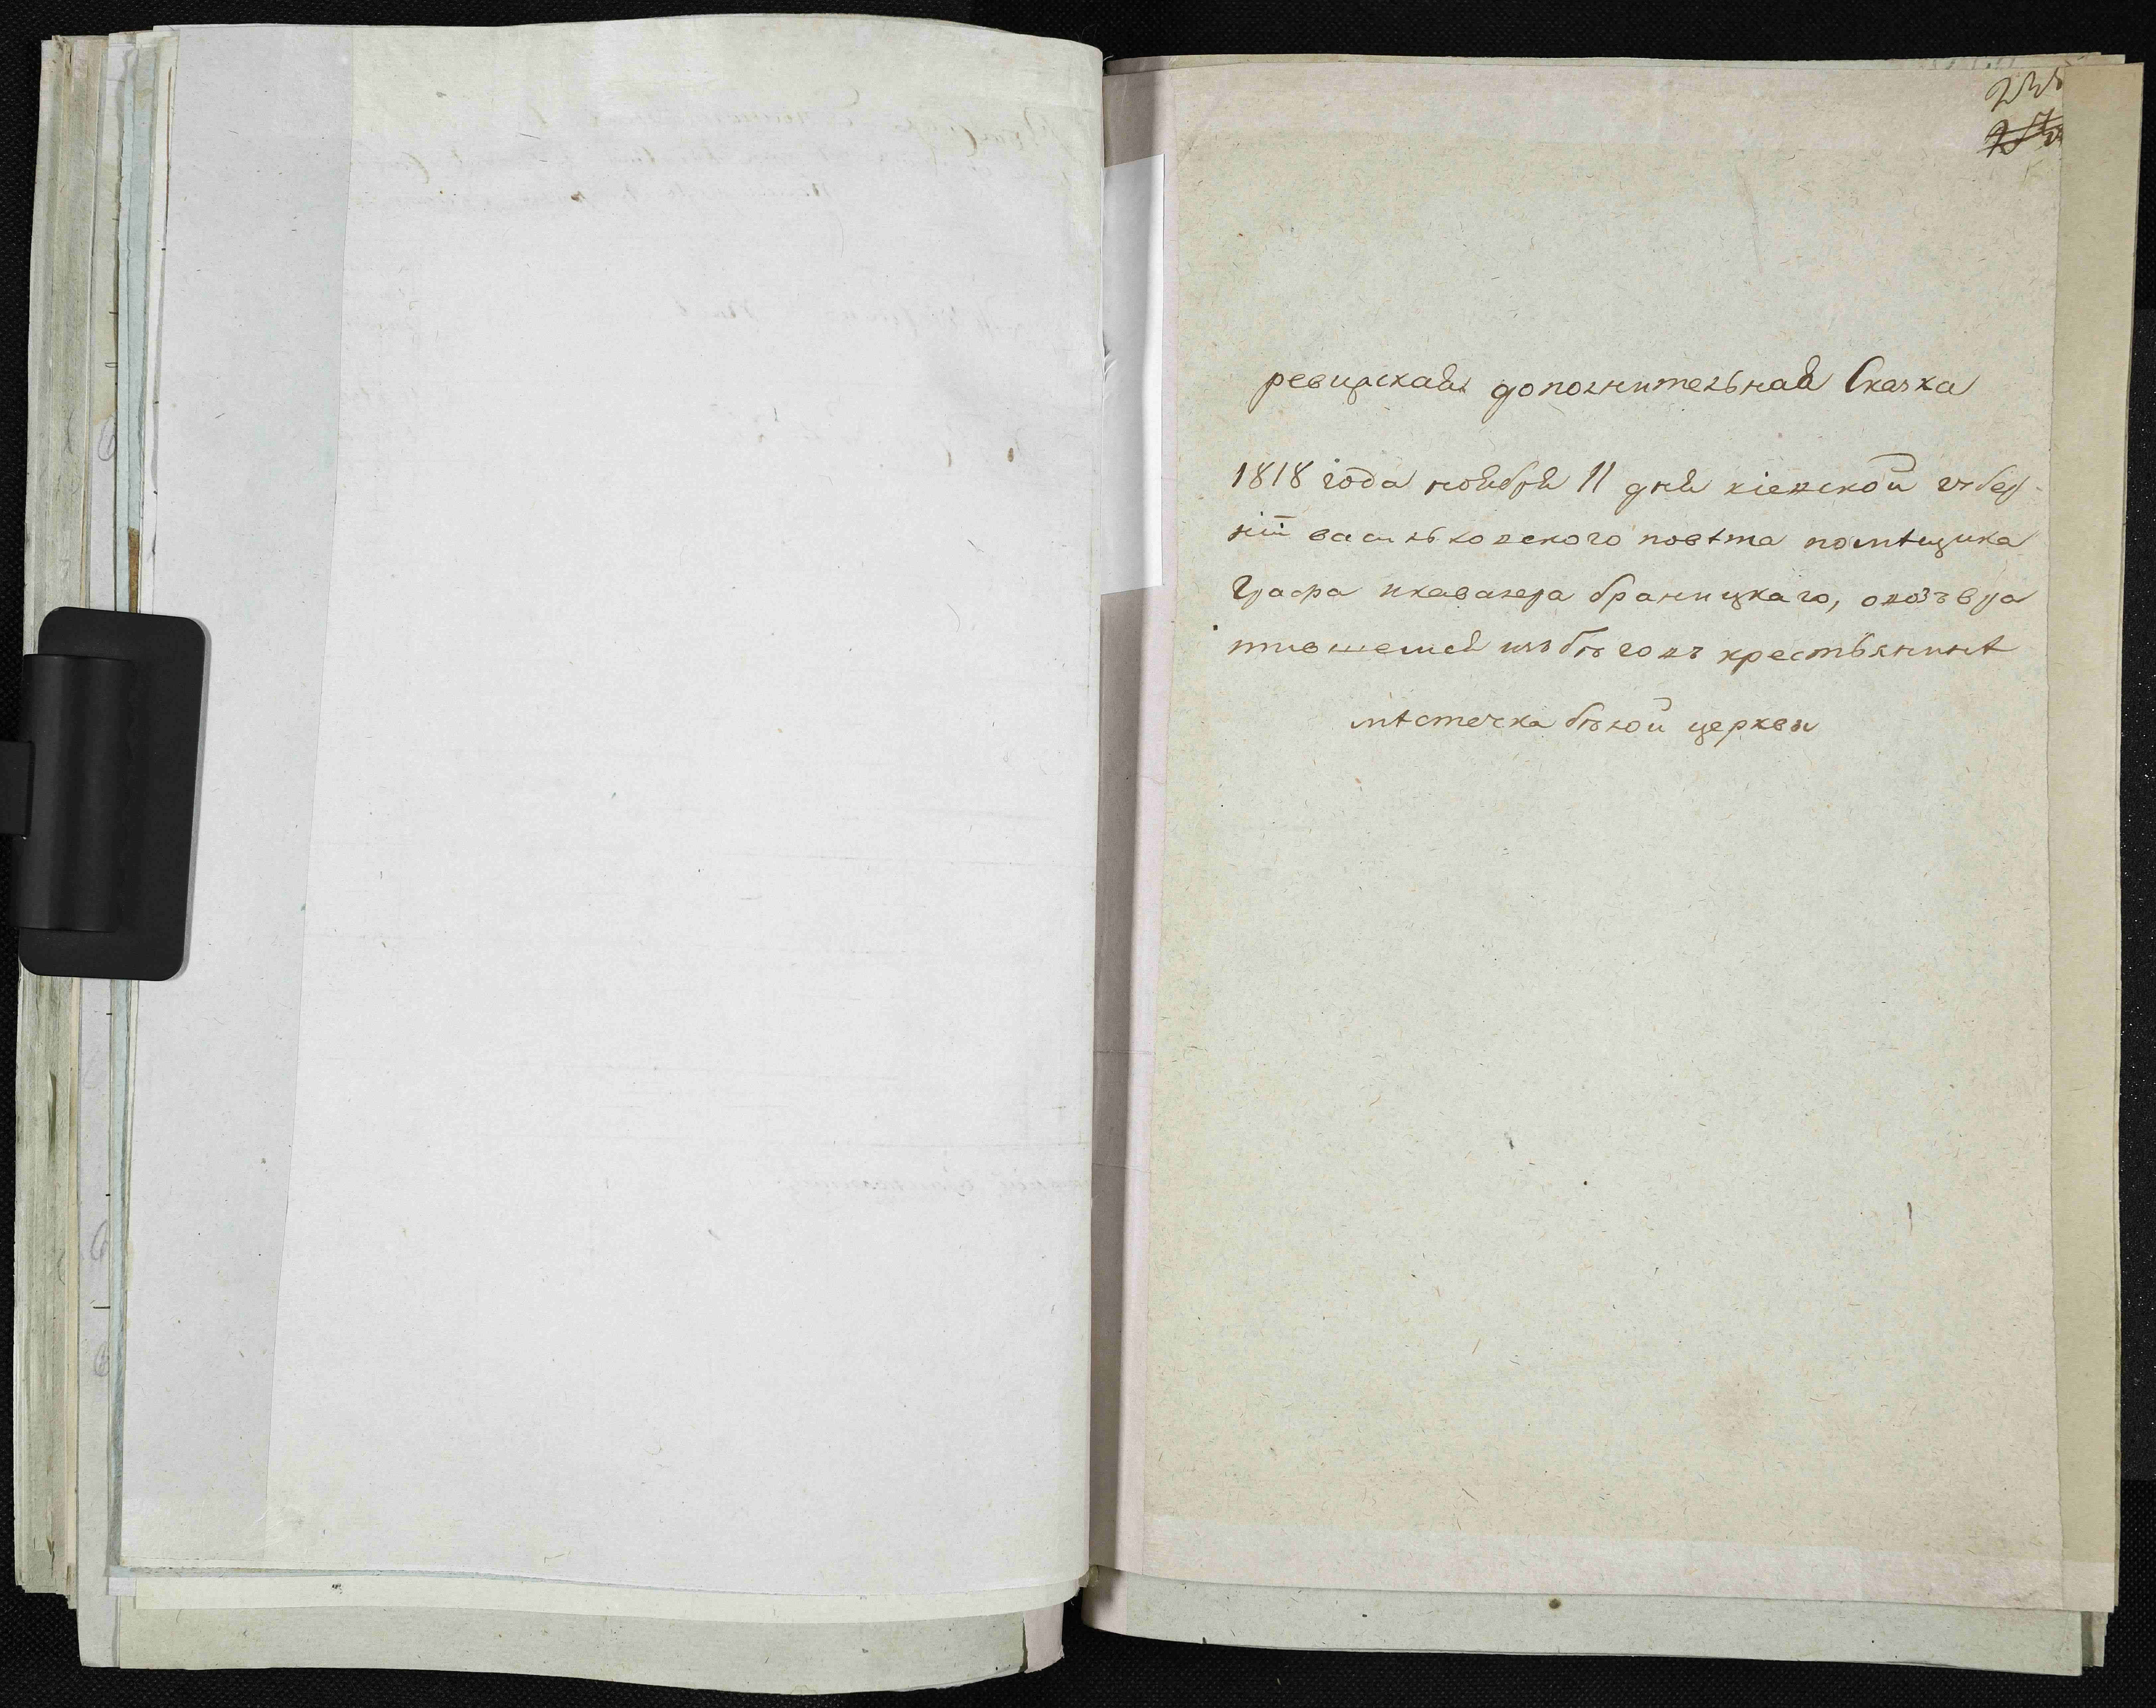 ревизская дополнительная Сказка
1818 года ноября 11 дня кіевской губер-
ніи васильковского повѣта помѣщика
Графа икавалера браницкаго, овозъвра
тившемся изъбѣговъ крестьянинѣ
мѣстечка бѣлой церкви